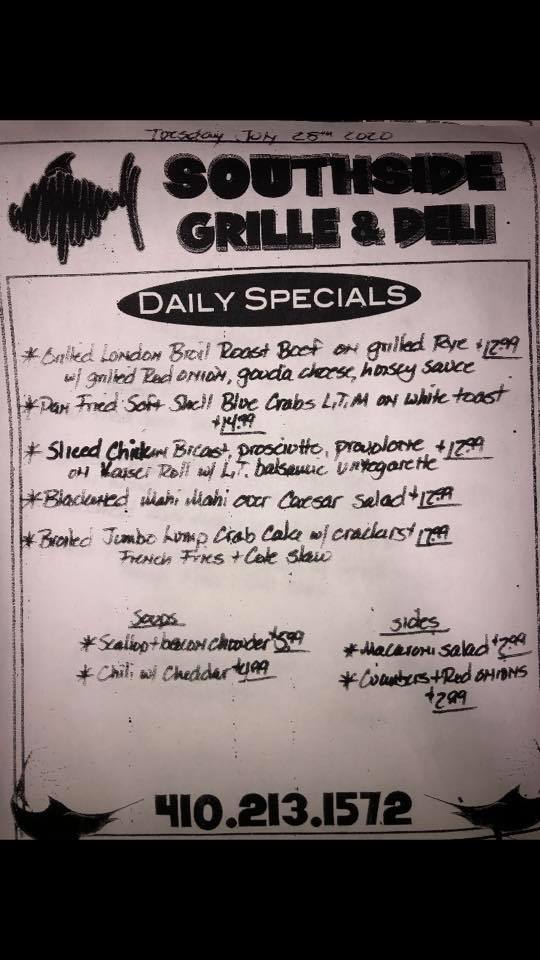 Tuesday July 28TH 2020
SOUTHSIDE
GRILLE & DELI
DAILY SPECIALS
* Grilled London Broil Roast Beef on grilled Rye $12.99
w/ grilled Red onion, gouda cheese, horsey sauce
* Pan Fried Soft Shell Blue Crabs L,T,M on white toast
$14.99
* Sliced Chicken Breast, prosciutto, provolone $12.99
on Kaiser Roll w/ L,T. balsamic vinegarette
* Blackened Mahi Mahi over Caesar salad $12.99
* Broiled Jumbo Lump Crab Cake w/ crackers $17.99
French Fries + Cole slaw
Soups
* Scallop + bacon chowder $5.99
* Chili w/ Cheddar $4.99
sides
* Macaroni salad $2.99
* Cucumbers + Red onions
$2.99
410.213.1572